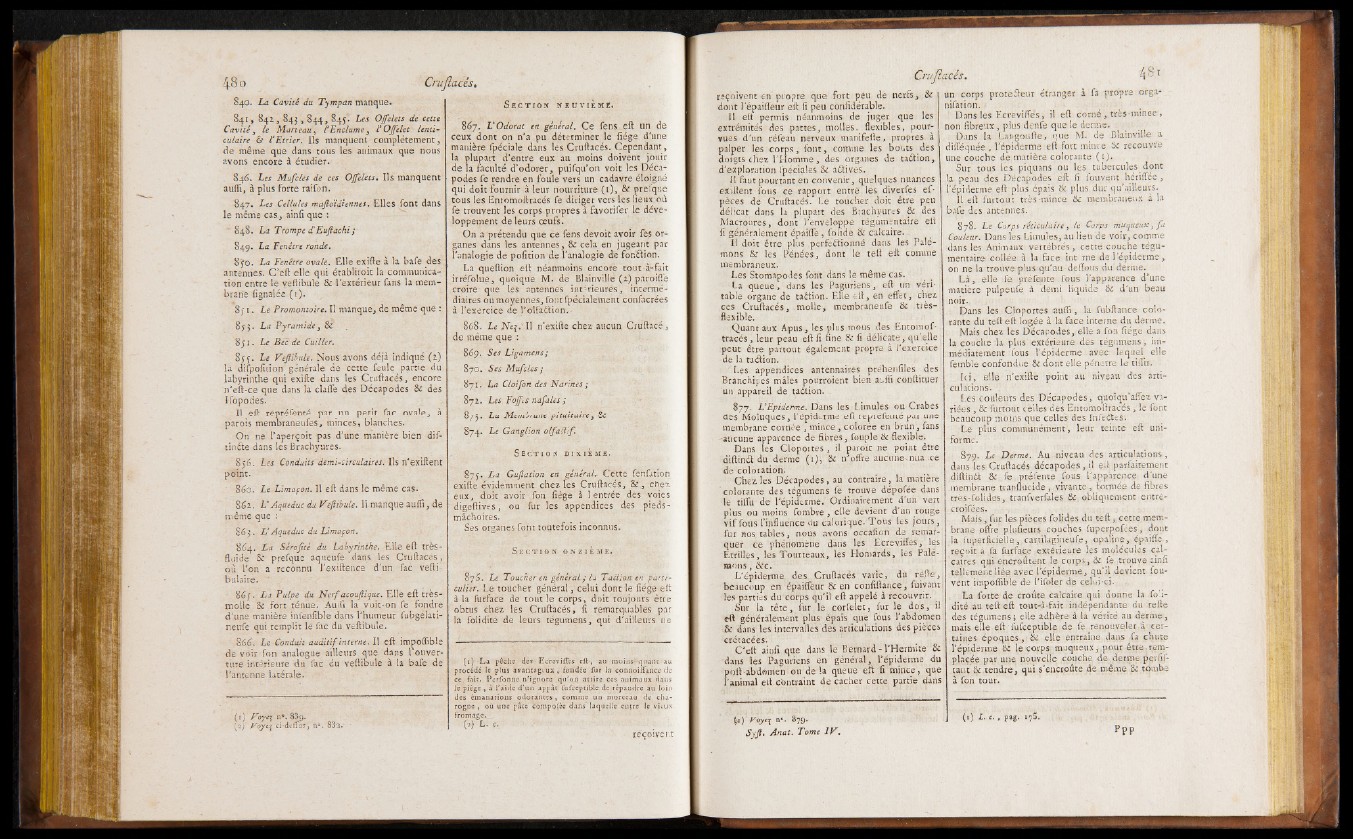 480
Cruſtacés.
840. La Cavité du Tympan manque.
841, 842, 843, 844, 845. Les Oſſelets de cette
Cavité, le Marteau, l'Enclume, l'Oſſelet lenti-
culaire & l'Etrier. Ils manquent complétement,
de même que dans tous les animaux que nous
avons encore à étudier.
846. Les Muſcles de ces Oſſelets. Ils manquent
auſſi, à plus forte raiſon.
847. Les Cellules maſtoïdiennes. Elles ſont dans
le même cas, ainſi que :
848. La Trompe d'Euſtachi ;
849. La Fenêtre ronde.
850. La Fenêtre ovale. Elle exiſte à la baſe des
antennes. C'eſt elle qui établiroit la communica-
tion entre le veſtibule & l'extérieur ſans la mem-
brane ſignalée (1).
851. Le Promontoire. Il manque, de même que :
853. La Pyramide, &
851. Le Bec de Cuiller.
855. Le Veſtibule. Nous avons déjà indiqué (2)
la diſpoſition générale de cette ſeule partie du
labyrinthe qui exiſte dans les Cruſtacés, encore
n'eſt-ce que dans la claſſe des Décapodes & des
Iſopodes.
Il eſt repréſenté par un petit ſac ovale, à
parois membraneuſes, minces, blanches.
On ne l'aperçoit pas d'une manière bien diſ-
tincte dans les Brachyures.
856. Les Conduits demi-circulaires. Ils n'exiſtent
point.
860. Le Limaçon. Il eſt dans le même cas.
862. L'Aqueduc du Veſtibule. Il manque auſſi, de
même que :
863. L'Aqueduc du Limaçon.
864. La Séroſité du Labyrinthe. Elle eſt très-
fluide & preſque aqueuſe dans les Cruſtacés,
où l'on a reconnu l'exiſtence d'un ſac veſti-
bulaire.
865. La Pulpe du Nerf acouſtique. Elle eſt très-
molle & fort ténue. Auſſi la voit-on ſe fondre
d'une manière inſenſible dans l'humeur ſubgélati-
neuſe qui remplit le ſac du veſtibule.
866. Le Conduit auditif interne. Il eſt impoſſible
de voir ſon analogue ailleurs que dans l'ouver-
ture intérieure du ſac du veſtibule à la baſe de
l'antenne latérale.
(1) Voyez n°. 839.
(2) Voyez ci-deſſus, n°. 832.
SECTION NEUVIÈME.
867. L'Odorat en général. Ce ſens eſt un de
ceux dont on n'a pu déterminer le ſiége d'une
manière ſpéciale dans les Cruſtacés. Cependant,
la plupart d'entre eux au moins doivent jouir
de la faculté d'odorer, puiſqu'on voit les Déca-
podes ſe rendre en foule vers un cadavre éloigné
qui doit fournir à leur nourriture (1), & preſque
tous les Entomoſtracés ſe diriger vers les lieux où
ſe trouvent les corps propres à favoriſer le déve-
loppement de leurs œufs.
On a prétendu que ce ſens devoit avoir ſes or-
ganes dans les antennes, & cela en jugeant par
l'analogie de poſition de l'analogie de fonction.
La queſtion eſt néanmoins encore tout-à-fait
irréſolue, quoique M. de Blainville (2) paroiſſe
croire que les antennes antérieures, intermé-
diaires ou moyennes, ſont ſpécialement conſacrées
à l'exercice de l'olfaction.
868. Le Nez. Il n'exiſte chez aucun Cruſtacé,
de même que :
869. Ses Ligamens ;
870. Ses Muſcles ;
871. La Cloiſon des Narines ;
872. Les Foſſes naſales ;
873. La Membrane pituitaire, &
874. Le Ganglion olfactif.
SECTION DIXIÈME.
875. La Guſtation en général. Cette ſenſation
exiſte évidemment chez les Cruſtacés, &, chez
eux, doit avoir ſon ſiége à l'entrée des voies
digeſtives, ou ſur les appendices des pieds-
mâchoires.
Ses organes ſont toutefois inconnus.
SECTION ONZIÈME.
876. Le Toucher en général ; la Taction en parti-
culier. Le toucher général, celui dont le ſiége eſt
à la ſurface de tout le corps, doit toujours être
obtus chez les Cruſtacés, ſi remarquables par
la ſolidité de leurs tégumens, qui d'ailleurs ne
(1) La pêche des Ecreviſſes eſt, au moins quant au
procédé le plus avantageux, fondée ſur la connoiſſance de
ce fait. Perſonne n'ignore qu'on attire ces animaux dans
le piége, à l'aide d'un appât ſuſceptible de répandre au loin
des émanations odorantes, comme un morceau de cha-
rogne, ou une pâte compoſée dans laquelle entre le vieux
fromage.
(2) L. c.
reçoivent
Cruſtacés.
481
reçoivent en propre que fort peu de nerfs, &
dont l'épaiſſeur eſt ſi peu conſidérable.
Il eſt permis néanmoins de juger que les
extrémités des pattes, molles, flexibles, pour-
vues d'un réſeau nerveux manifeſte, propres à
palper les corps, ſont, comme les bouts des
doigts chez l'Homme, des organes de taction,
d'exploration ſpéciales & actives.
Il faut pourtant en convenir, quelques nuances
exiſtent ſous ce rapport entre les diverſes eſ-
pèces de Cruſtacés. Le toucher doit être peu
délicat dans la plupart des Brachyures & des
Macroures, dont l'enveloppe tégumentaire eſt
ſi généralement épaiſſe, ſolide & calcaire.
Il doit être plus perfectionné dans les Palé-
mons & les Pénées, dont le teſt eſt comme
membraneux.
Les Stomapodes ſont dans le même cas.
La queue, dans les Paguriens, eſt un véri-
table organe de taction. Elle eſt, en effet, chez
ces Cruſtacés, molle, membraneuſe & très-
flexible.
Quant aux Apus, les plus mous des Entomoſ-
tracés, leur peau eſt ſi fine & ſi délicate, qu'elle
peut être partout également propre à l'exercice
de la taction.
Les appendices antennaires préhenſiles des
Branchipes mâles pourroient bien auſſi conſtituer
un appareil de taction.
877. L'Epiderme. Dans les Limules ou Crabes
des Moluques, l'épiderme eſt repréſenté par une
membrane cornée, mince, colorée en brun, ſans
aucune apparence de fibres, ſouple & flexible.
Dans les Cloportes, il paroît ne point être
diſtinct du derme (1), & n'offre aucune nuance
de coloration.
Chez les Décapodes, au contraire, la matière
colorante des tégumens ſe trouve dépoſée dans
le tiſſu de l'épiderme. Ordinairement d'un vert
plus ou moins ſombre, elle devient d'un rouge
vif ſous l'influence du calorique. Tous les jours,
ſur nos tables, nous avons occaſion de remar-
quer ce phénomène dans les Ecreviſſes, les
Etrilles, les Tourteaux, les Homards, les Palé-
mons, &c.
L'épiderme des Cruſtacés varie, du reſte,
beaucoup en épaiſſeur & en conſiſtance, ſuivant
les parties du corps qu'il eſt appelé à recouvrir.
Sur la tête, ſur le corſelet, ſur le dos, il
eſt généralement plus épais que ſous l'abdomen
& dans les intervalles des articulations des pièces
crétacées.
C'eſt ainſi que dans le Bernard-l'Hermite &
dans les Paguriens en général, l'épiderme du
poſt-abdomen ou de la queue eſt ſi mince, que
l'animal eſt contraint de cacher cette partie dans
(1) Voyez n°. 879.
Syſt. Anat. Tome IV.
un corps protecteur étranger à ſa propre orga-
niſation.
Dans les Ecreviſſes, il eſt corné, très-mince,
non fibreux, plus denſe que le derme.
Dans la Langouſte, que M. de Blainville a
diſſéquée, l'épiderme eſt fort mince & recouvre
une couche de matière colorante (1).
Sur tous les piquans ou les tubercules dont
la peau des Décapodes eſt ſi ſouvent hériſſée,
l'épiderme eſt plus épais & plus dur qu'ailleurs.
Il eſt ſurtout très-mince & membraneux à la
baſe des antennes.
878. Le Corps réticulaire, le Corps muqueux, ſa
Couleur. Dans les Limules, au lieu de voir, comme
dans les Animaux vertébrés, cette couche tégu-
mentaire collée à la face interne de l'épiderme,
on ne la trouve plus qu'au deſſous du derme.
Là, elle ſe préſente ſous l'apparence d'une
matière pulpeuſe à demi liquide & d'un beau
noir.
Dans les Cloportes auſſi, la ſubſtance colo-
rante du teſt eſt logée à la face interne du derme.
Mais chez les Décapodes, elle a ſon ſiége dans
la couche la plus extérieure des tégumens, im-
médiatement ſous l'épiderme avec lequel elle
ſemble confondue & dont elle pénètre le tiſſu.
Ici, elle n'exiſte point au niveau des arti-
culations.
Les couleurs des Décapodes, quoiqu'aſſez va-
riées, & ſurtout celles des Entomoſtracés, le ſont
beaucoup moins que celles des Inſectes.
Le plus communément, leur teinte eſt uni-
forme.
879. Le Derme. Au niveau des articulations,
dans les Cruſtacés décapodes, il eſt parfaitement
diſtinct & ſe préſente ſous l'apparence d'une
membrane tranſlucide, vivante, formée de fibres
très-ſolides, tranſverſales & obliquement entre-
croiſées.
Mais, ſur les pièces ſolides du teſt, cette mem-
brane offre pluſieurs couches ſuperpoſées, dont
la ſuperficielle, cartilagineuſe, opaline, épaiſſe,
reçoit à ſa ſurface extérieure les molécules cal-
caires qui encroûtent le corps, & ſe trouve ainſi
tellement liée avec l'épiderme, qu'il devient ſou-
vent impoſſible de l'iſoler de celui-ci.
La ſorte de croûte calcaire qui donne la ſoli-
dité au teſt eſt tout-à-fait indépendante du reſte
des tégumens ; elle adhère à la vérité au derme,
mais elle eſt ſuſceptible de ſe renouveler à cer-
taines époques, & elle entraîne dans ſa chute
l'épiderme & le corps muqueux, pour être rem-
placée par une nouvelle couche de derme perſiſ-
tant & tendre, qui s'encroûte de même & tombe
à ſon tour.
(1) L. c., pag. 176.
Ppp